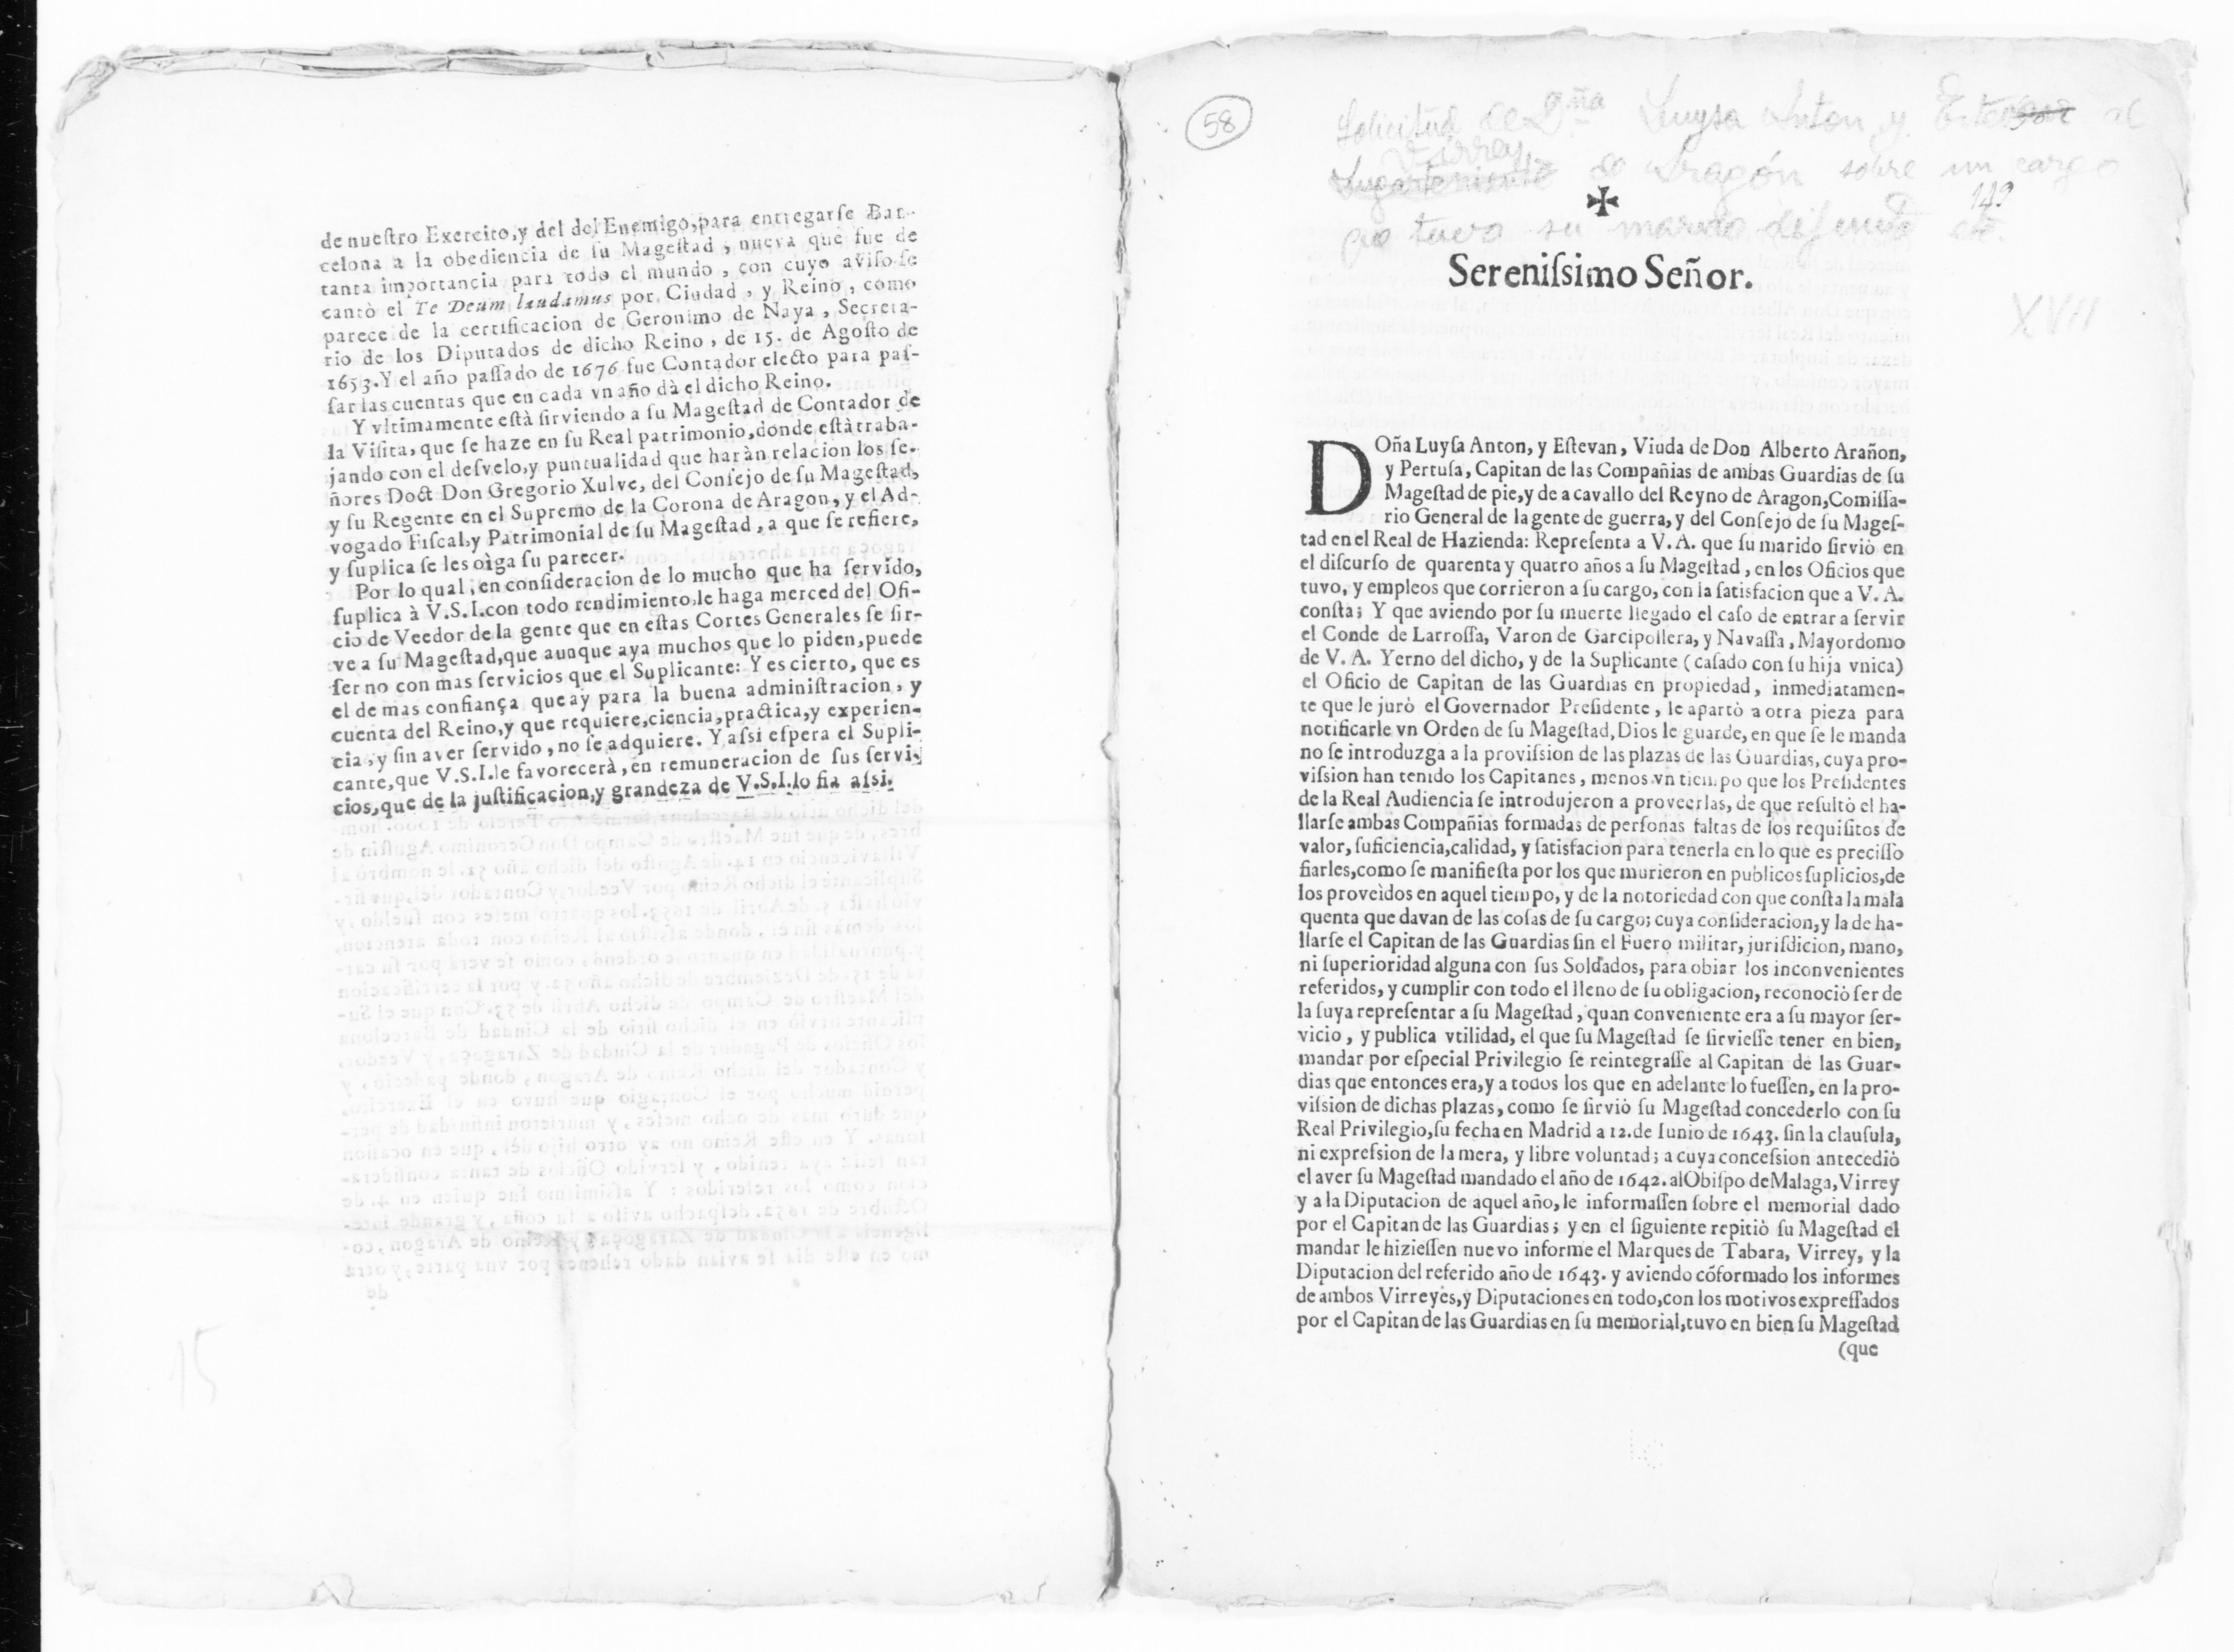 de nueſtro Exercito,y del del Enemigo,para entregarſe Bar-
celona a la obediencia de ſu Mageſtad, nueva que fue de
tanta importancia para todo el mundo, con cuyo aviſo ſe
cantò el Te Deum laudamus por Ciudad, y Reino, como
parece de la certificacion de Geronimo de Naya, Secreta-
rio de los Diputados de dicho Reino, de 15. de Agoſto de
1653.Y el año paſſado de 1676 fue Contador electo para paſ-
ſar las cuentas que en cada vn año dà el dicho Reino.
Y vltimamente eſtà ſirviendo a ſu Mageſtad de Contador de
la Viſita, que ſe haze en ſu Real patrimonio,donde eſtà traba-
jando con el deſvelo,y puntualidad que haràn relacion los ſe-
ñores Doct Don Gregorio Xulve, del Conſejo de ſu Mageſtad,
y ſu Regente en el Supremo de la Corona de Aragon, y el Ad-
vogado Fiſcal,y Patrimonial de ſu Mageſtad, a que ſe refiere,
y ſuplica ſe les oìga ſu parecer.
Por lo qual, en conſideracion de lo mucho que ha ſervido,
ſuplica à V.S.I.con todo rendimiento,le haga merced del Ofi-
cio de Veedor de la gente que en eſtas Cortes Generales ſe ſir-
ve a ſu Mageſtad,que aunque aya muchos que lo piden,puede
ſer no con mas ſervicios que el Suplicante: Y es cierto, que es
el de mas confiança que ay para la buena adminiſtracion, y
cuenta del Reino,y que requiere,ciencia,practica,y experien-
cia,y ſin aver ſervido, no ſe adquiere. Y aſsi eſpera el Supli-
cante,que V.S.I.le favorecerà, en remuneracion de ſus ſervi-
cios,que de la juſtificacion,y grandeza de V.S.I.lo fia aſsi.
15
58
Solicitud de Dña Luysa Anton y Estevan al
Virrey de Aragón sobre un cargo
que tuvo su marido difunto etc.
149
XVII
✠
Sereniſsimo Señor.
DOña Luyſa Anton, y Eſtevan, Viuda de Don Alberto Arañon,
y Pertuſa, Capitan de las Compañias de ambas Guardias de ſu
Mageſtad de pie,y de a cavallo del Reyno de Aragon,Comiſſa-
rio General de la gente de guerra, y del Conſejo de ſu Mageſ-
tad en el Real de Hazienda: Repreſenta a V. A. que ſu marido ſirviò en
el diſcurſo de quarenta y quatro años a ſu Mageſtad, en los Oficios que
tuvo, y empleos que corrieron a ſu cargo, con la ſatisfacion que a V. A.
conſta; Y que aviendo por ſu muerte llegado el caſo de entrar a ſervir
el Conde de Larroſſa, Varon de Garcipollera, y Navaſſa, Mayordomo
de V. A. Yerno del dicho, y de la Suplicante (caſado con ſu hija vnica)
el Oficio de Capitan de las Guardias en propiedad, inmediatamen-
te que le jurò el Governador Preſidente, le apartò a otra pieza para
notificarle vn Orden de ſu Mageſtad, Dios le guarde, en que ſe le manda
no ſe introduzga a la proviſsion de las plazas de las Guardias, cuya pro-
viſsion han tenido los Capitanes, menos vn tiempo que los Preſidentes
de la Real Audiencia ſe introdujeron a proveerlas, de que reſultò el ha-
llarſe ambas Compañias formadas de perſonas faltas de los requiſitos de
valor, ſuficiencia,calidad, y ſatisfacion para tenerla en lo que es preciſſo
fiarles,como ſe manifieſta por los que murieron en publicos ſuplicios,de
los proveìdos en aquel tiempo, y de la notoriedad con que conſta la mala
quenta que davan de las coſas de ſu cargo; cuya conſideracion,y la de ha-
llarſe el Capitan de las Guardias ſin el Fuero militar, juriſdicion, mano,
ni ſuperioridad alguna con ſus Soldados, para obiar los inconvenientes
referidos, y cumplir con todo el lleno de ſu obligacion, reconociò ſer de
la ſuya repreſentar a ſu Mageſtad, quan conveniente era a ſu mayor ſer-
vicio, y publica vtilidad, el que ſu Mageſtad ſe ſirvieſſe tener en bien,
mandar por eſpecial Privilegio ſe reintegraſſe al Capitan de las Guar-
dias que entonces era,y a todos los que en adelante lo fueſſen, en la pro-
viſsion de dichas plazas, como ſe ſirviò ſu Mageſtad concederlo con ſu
Real Privilegio,ſu fecha en Madrid a 12.de Iunio de 1643. ſin la clauſula,
ni expreſsion de la mera, y libre voluntad; a cuya conceſsion antecediò
el aver ſu Mageſtad mandado el año de 1642. al Obiſpo de Malaga, Virrey
y a la Diputacion de aquel año, le informaſſen ſobre el memorial dado
por el Capitan de las Guardias; y en el ſiguiente repitiò ſu Mageſtad el
mandar le hizieſſen nuevo informe el Marques de Tabara, Virrey, y la
Diputacion del referido año de 1643. y aviendo cõformado los informes
de ambos Virreyes,y Diputaciones en todo,con los motivos expreſſados
por el Capitan de las Guardias en ſu memorial,tuvo en bien ſu Mageſtad
(que